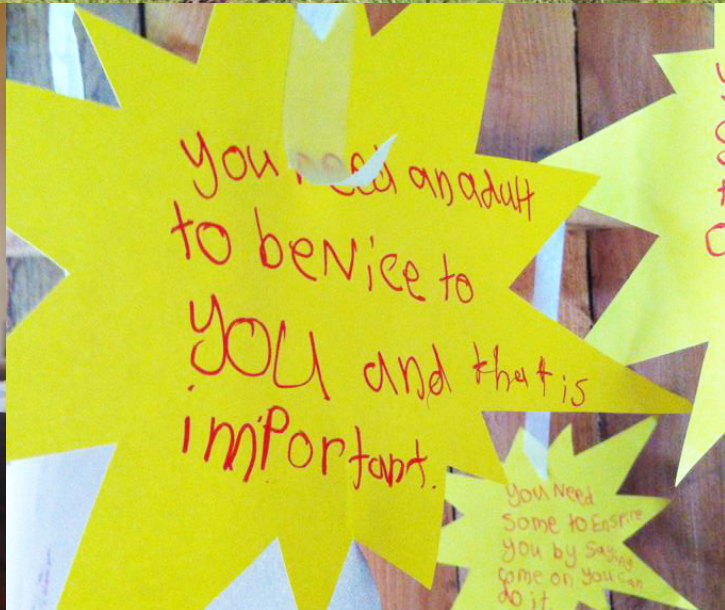 you need an adult
to be Nice to
YOU and that is
imPortant.
you Need
some to Enspire
you by saying
come on you can
do it